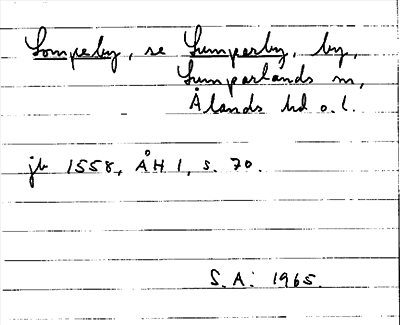 Lomperby, se Lumparby, by,
Lumparlands sn,
Ålands hd o. l.
jb 1558, ÅH 1, s. 70.
S. A: 1965.